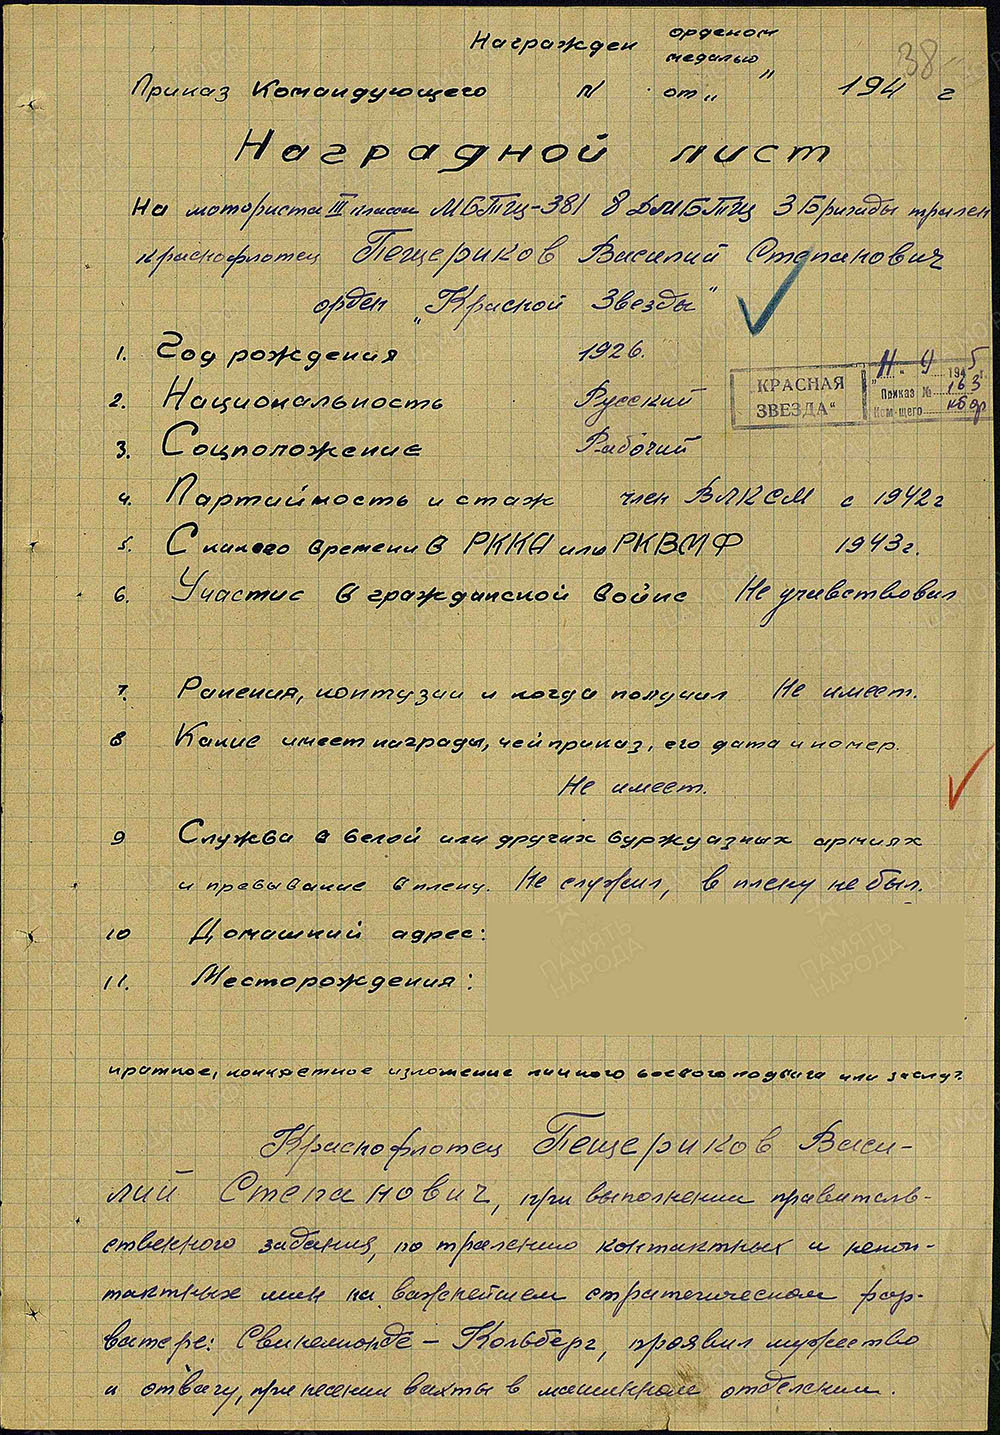 Награжден орденом
медалью
38
Приказ Командующего № от „ " 194 г
Наградной лист
На моториста III класса МБТЩ-381 8 ДМБТЩ 3 Бригады трален
краснофлотец Пещериков Василий Степанович
орден „Красной Звезды"
1. Год рождения 1926.
2. Национальность Русский
„КРАСНАЯ ЗВЕЗДА"
„11" 9 1945 г.
Приказ № 163
Ком-щего КБФ
3. Соцположение Рабочий
4. Партийность и стаж член ВЛКСМ с 1942 г
5. С какого времени в РККА или РКВМФ 1943 г.
6. Участие в гражданской войне Не учавствовал
7. Ранения, контузии и когда получил Не имеет.
8 Какие имеет награды, чей приказ, его дата и номер.
Не имеет.
9 Служба в белой или других буржуазных армиях
и пребывание в плену. Не служил, в плену не был.
10 Домашний адрес:
11. Месторождения:
краткое, конкретное изложение личного боевого подвига или заслуг.
Краснофлотец Пещериков Васи-
лий Степанович, при выполнении правительв-
ственного задания, по тралению контактных и некон-
тактных мин на важнейшем стратегическом фар-
ватере: Свинемюнде - Кольберг, проявил мужество
и отвагу, при несении вахты в машинном отделении.